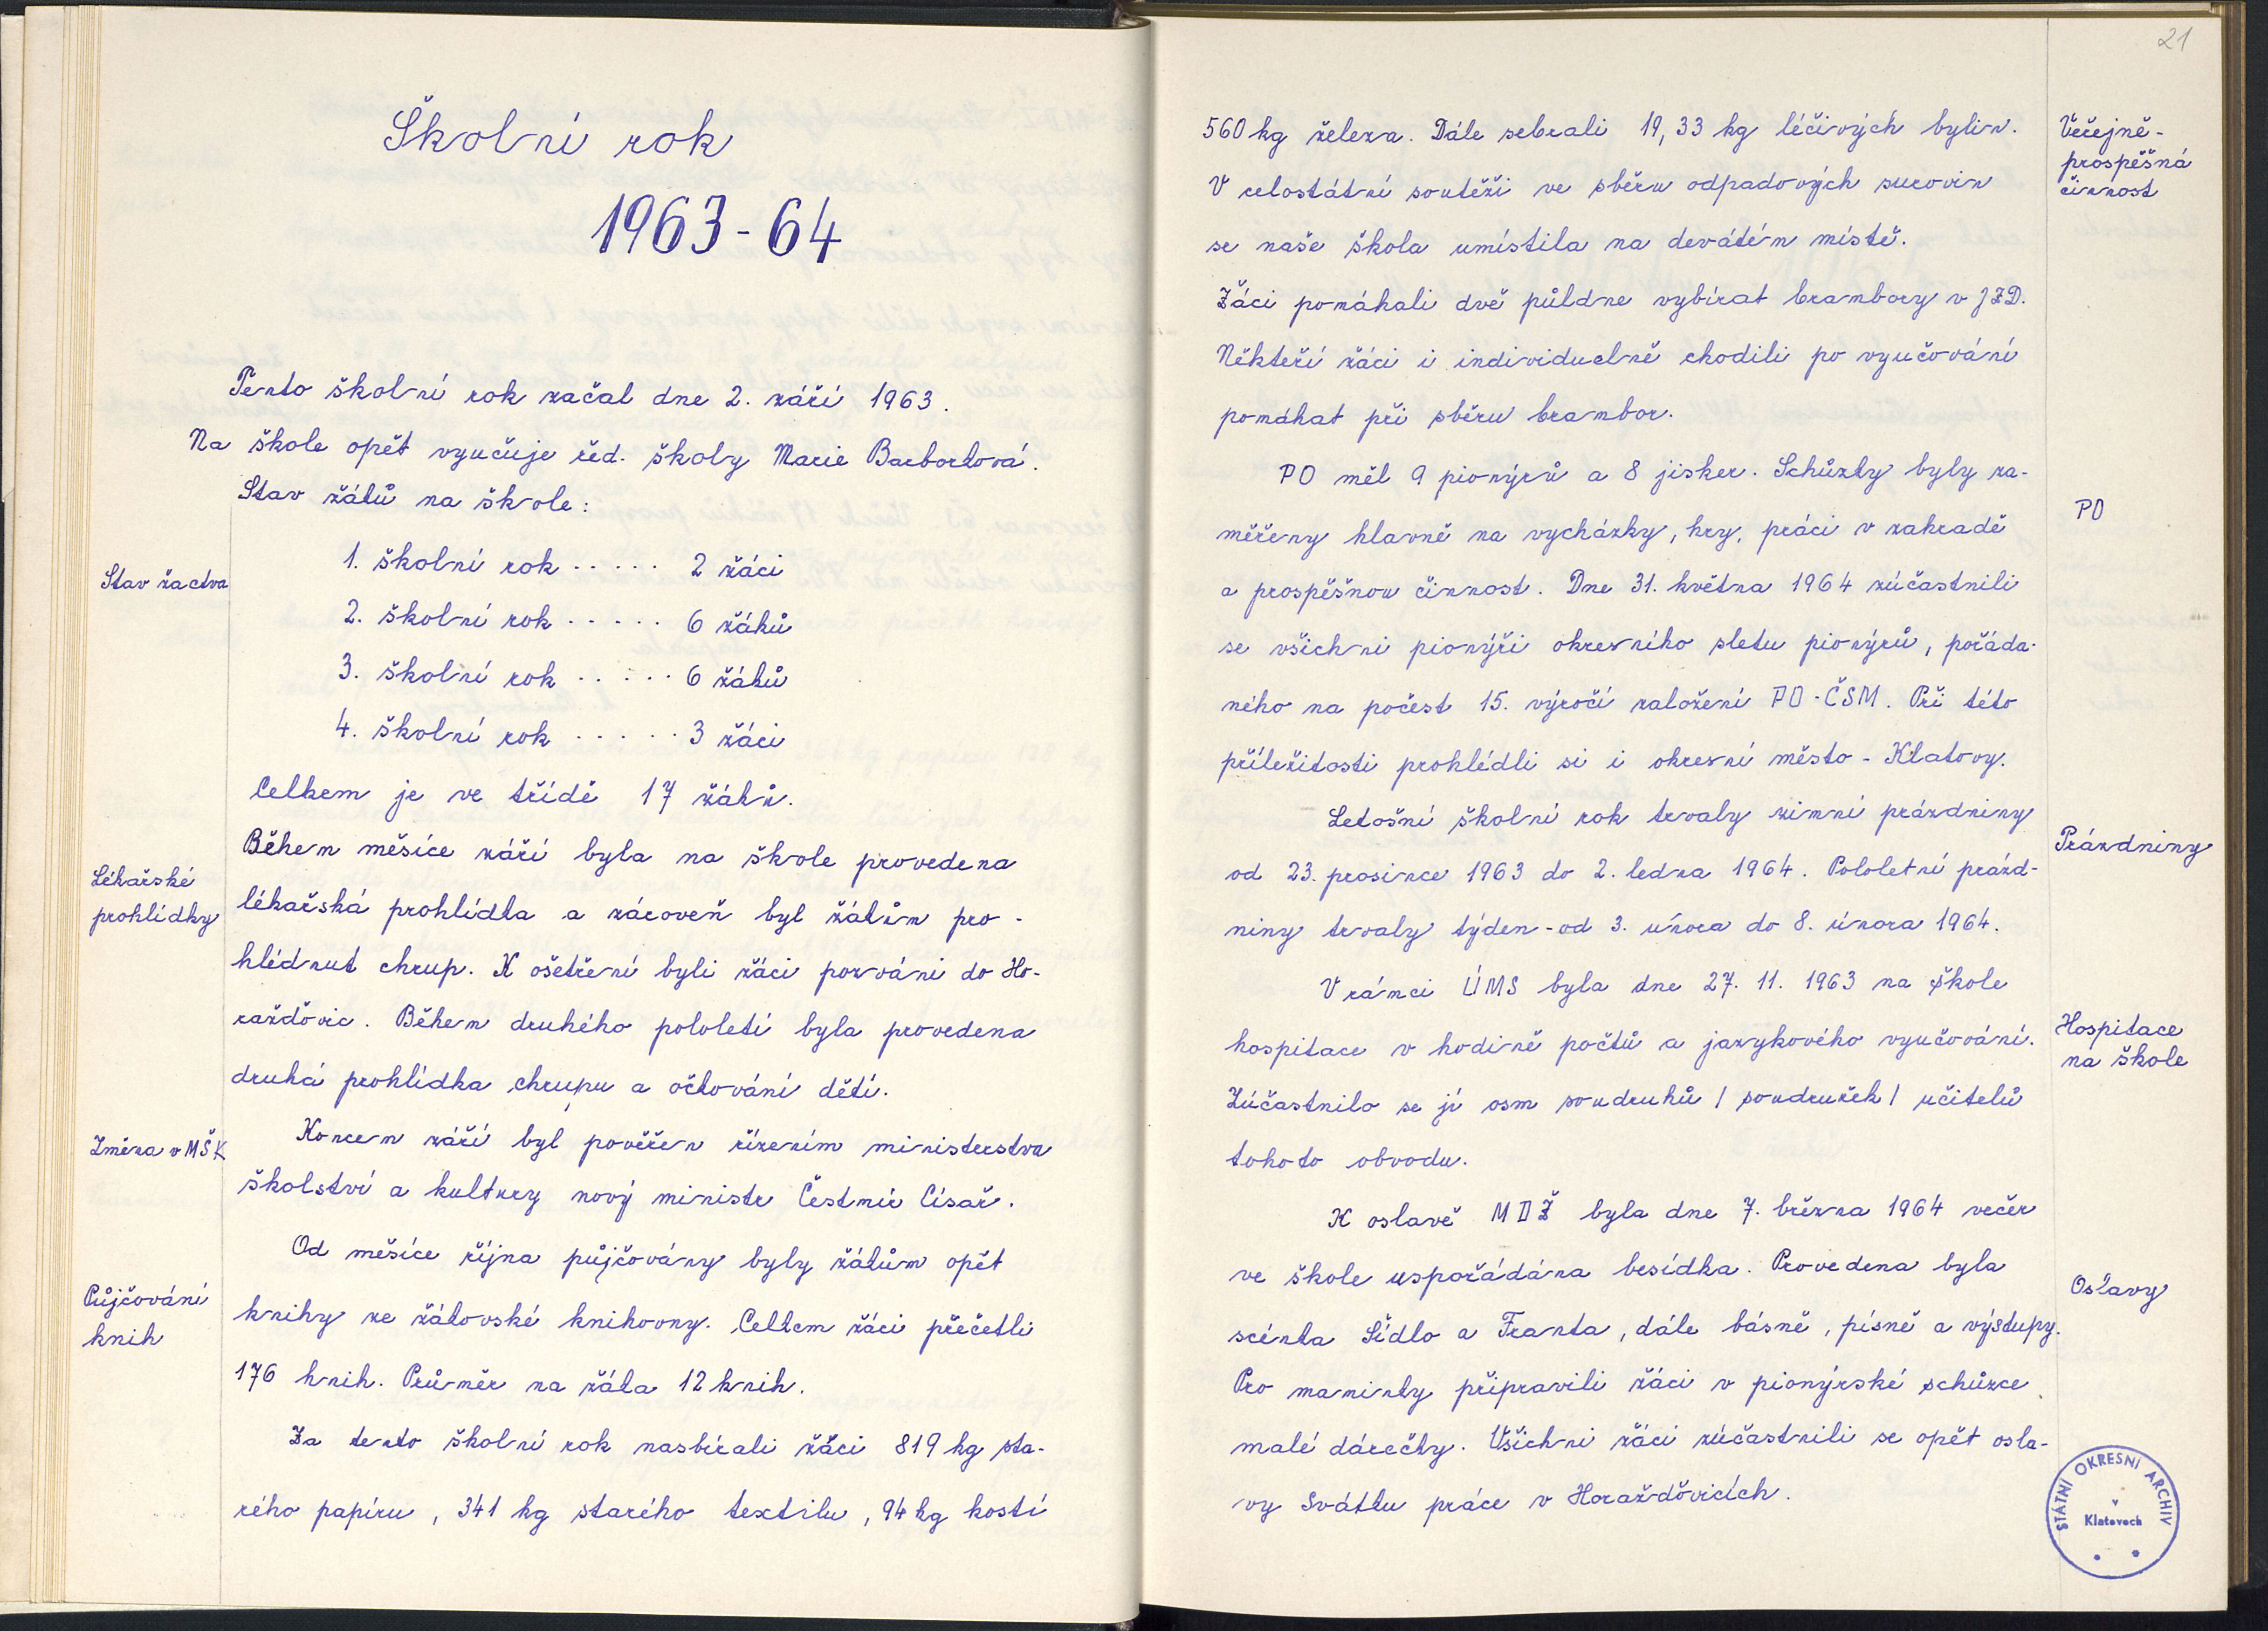 Školní rok
1963-64
Tento školní rok začal dne 2. září 1963.
Na škole opět vyučuje řed. školy Marie Barbortová.
Stav žáků na škole:
Stav žactva
1. školní rok ..... 2 žáci
2. školní rok ..... 6 žáků
3. školní rok ..... 6 žáků
4. školní rok ..... 3 žáci
Celkem je ve třídě 17 žáků.
Lékařské
prohlídky
Během měsíce září byla na škole provedena
lékařská prohlídka a zároveň byl žákům pro-
hlédnut chrup. K ošetření byli žáci pozváni do Ho-
ražďovic. Během druhého pololetí byla provedena
druhá prohlídka chrupu a očkování dětí.
Změna v MŠK
Koncem září byl pověřen řízením ministerstva
školství a kultury nový ministr Čestmír Císař.
Půjčování
knih
Od měsíce října půjčovány byly žákům opět
knihy ze žákovské knihovny. Celkem žáci přečetli
176 knih. Průměr na žáka 12 knih.
Za tento školní rok nasbírali žáci 819 kg sta-
rého papíru, 341 kg starého textilu, 94 kg kostí
21
560 kg železa. Dále sebrali 19,33 kg léčivých bylin.
V celostátní soutěži ve sběru odpadových surovin
se naše škola umístila na devátém místě.
Žáci pomáhali dvě půldne vybírat brambory v JZD.
Někteří žáci i individuelně chodili po vyučování
pomáhat při sběru brambor.
Veřejně-
prospěšná
činnost
PO měl 9 pionýrů a 8 jisker. Schůzky byly za-
měřeny hlavně na vycházky, hry, práci v zahradě
a prospěšnou činnost. Dne 31. května 1964 zúčastnili
se všichni pionýři okresního sletu pionýrů, pořáda-
ného na počest 15. výročí založení PO-ČSM. Při této
příležitosti prohlédli si i okresní město - Klatovy.
PO
Letošní školní rok trvaly zimní prázdniny
od 23. prosince 1963 do 2. ledna 1964. Pololetní prázd-
niny trvaly týden - od 3. února do 8. února 1964.
Prázdniny
V rámci ÚMS byla dne 27. 11. 1963 na škole
hospitace v hodině počtů a jazykového vyučování.
Zúčastnilo se jí osm soudruhů / soudružek / učitelů
tohoto obvodu.
Hospitace
na škole
K oslavě MDŽ byla dne 7. března 1964 večer
ve škole uspořádána besídka. Provedena byla
scénka Šídlo a Franta, dále básně, písně a výstupy.
Pro maminky připravili žáci v pionýrské schůzce
malé dárečky. Všichni žáci zúčastnili se opět osla-
vy Svátku práce v Horažďovicích.
Oslavy
STÁTNÍ OKRESNÍ ARCHIV
v
Klatovech